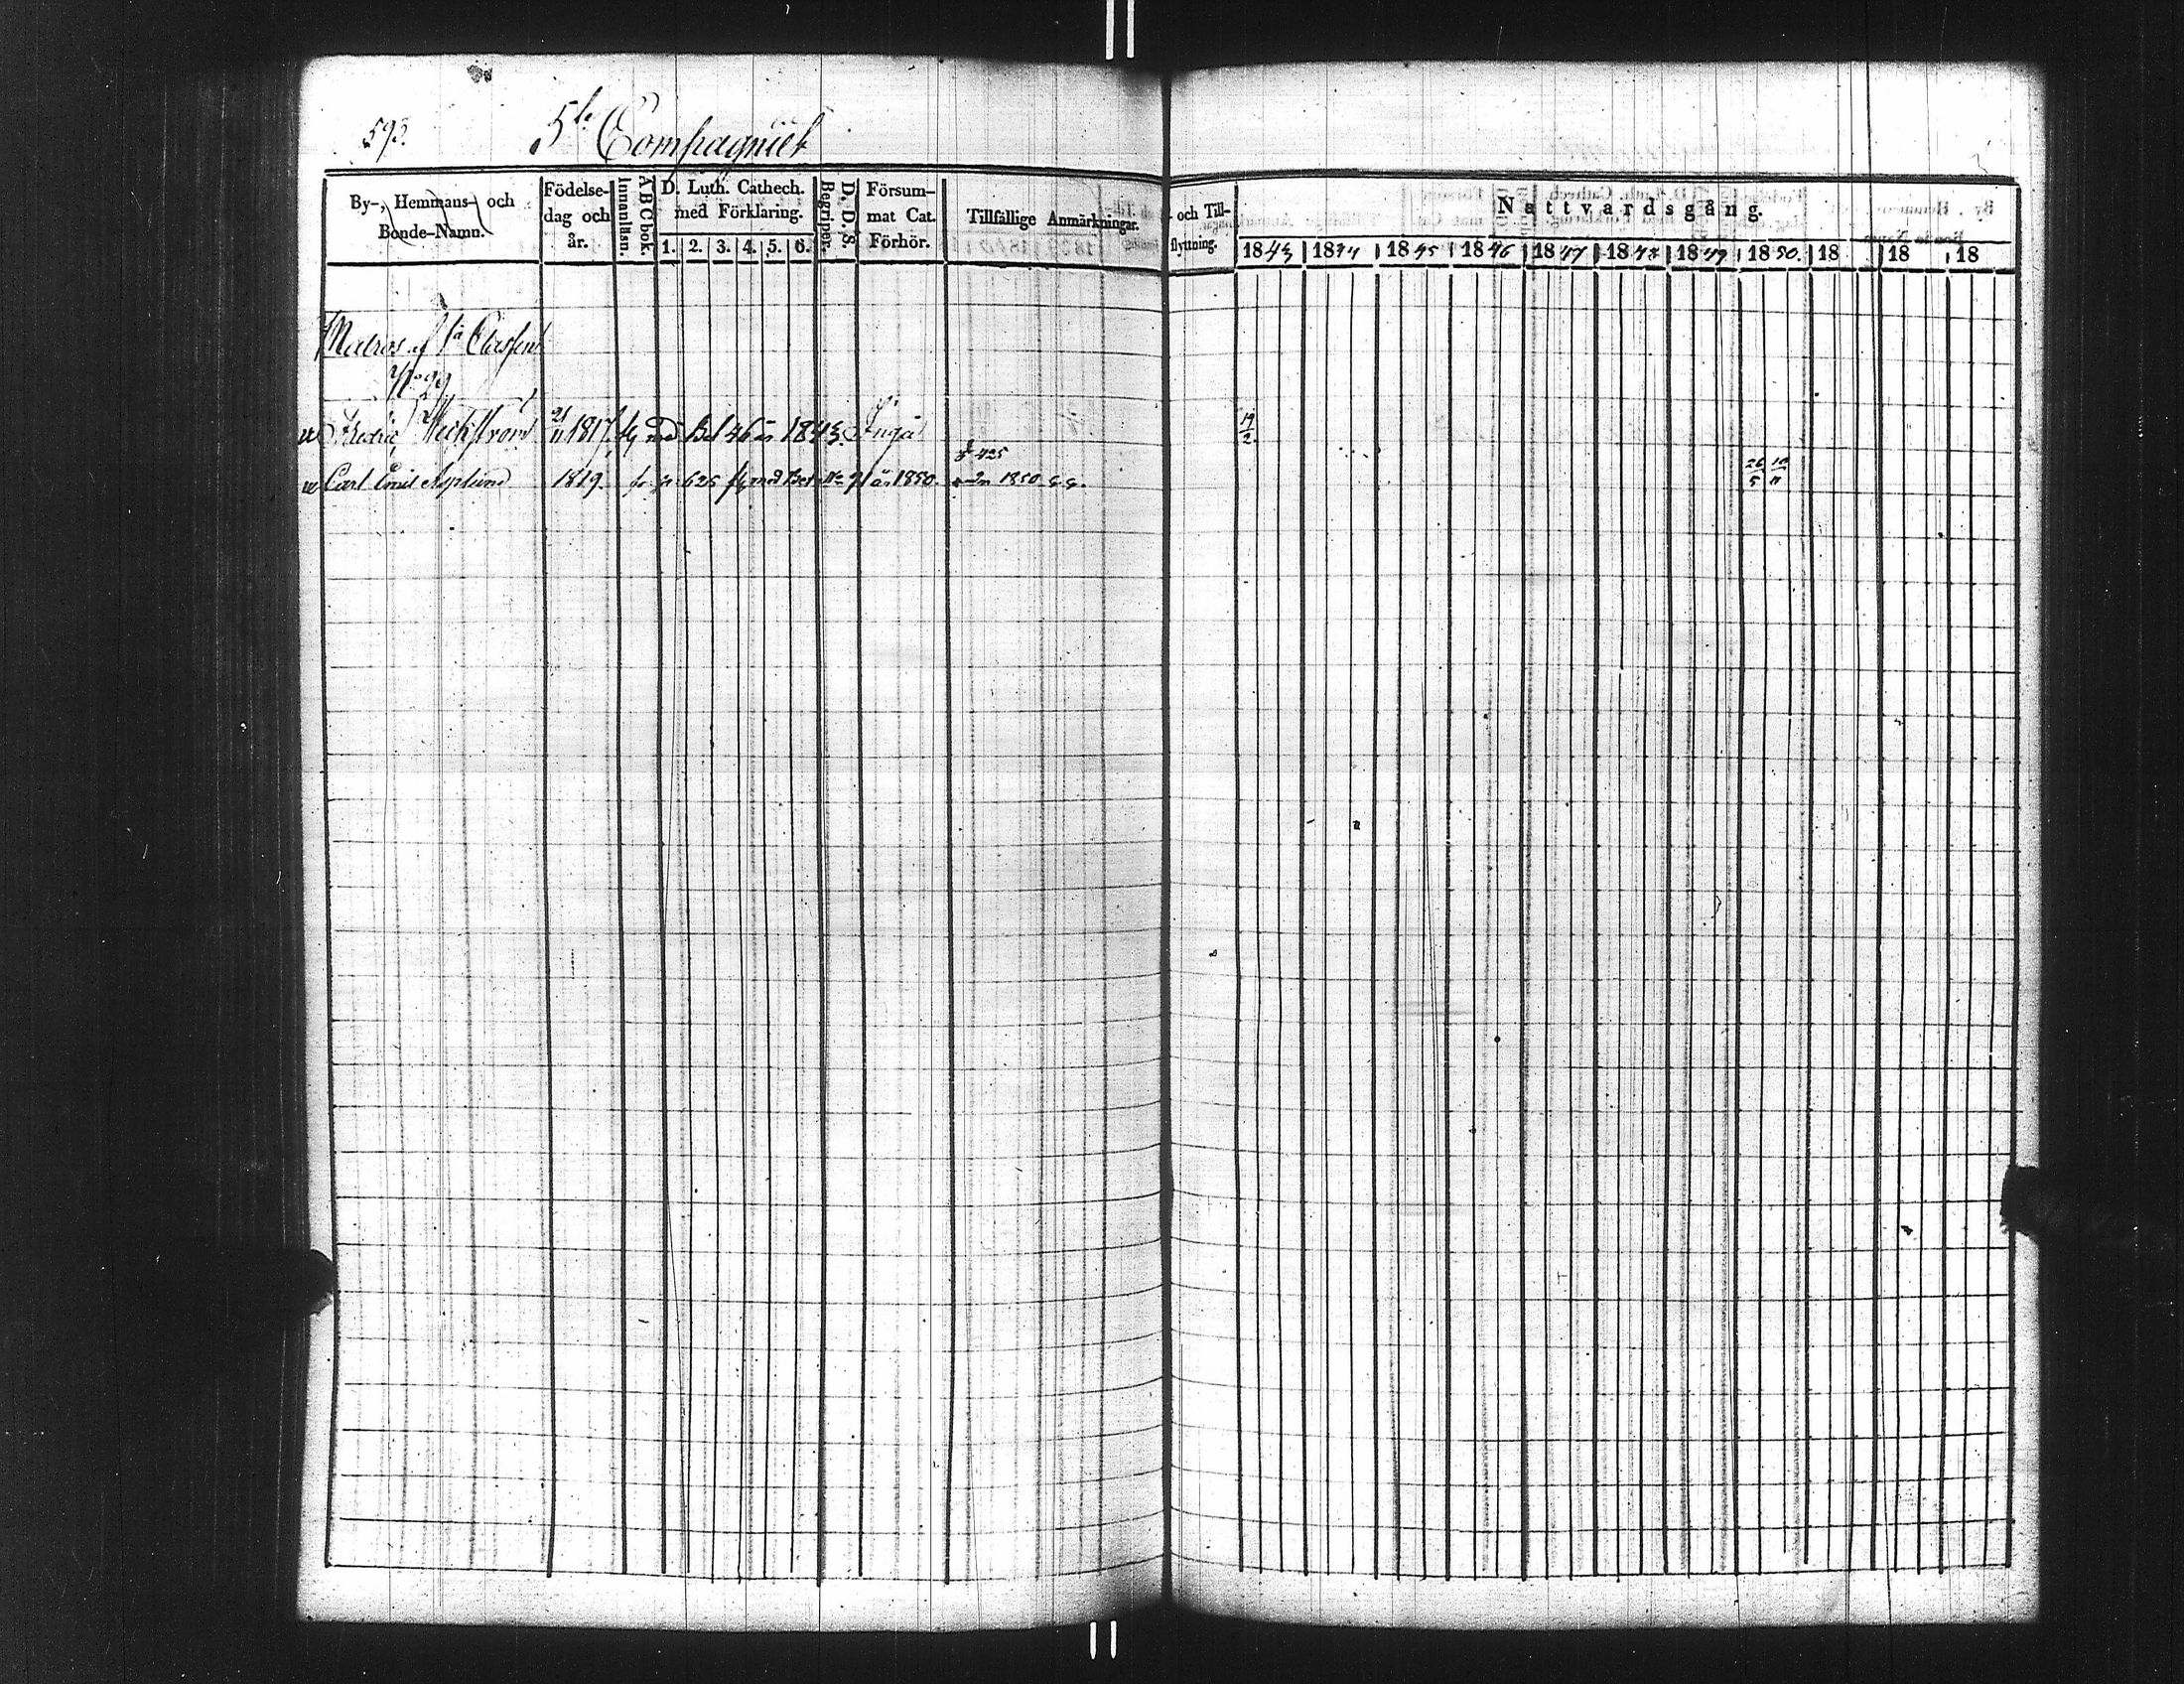 593.
5te Compagniet
By-, Hemmans- och Bonde-Namn.
Födelse-dag och år.
Innanläsn.
ABC bok.
D. Luth. Cathech. med Förklaring.
1. 2. 3. 4. 5. 6.
Begriper.
D. D. S.
Försum-mat Cat. Förhör.
Tillfällige Anmärkningar.
och Till-flyttning.
Nattvardsgång.
1843 1844 1845 1846 1847 1848 1849 1850. 18 18 18
Matros af 1a Classen
No 99
Fredric Heckström 21/11 1817. fl med Bet 46 år 1843. Ingå 19/2
425
Carl Emil Asplund 1819. fr p. 625 fl med Bet No 91 år 1850. 1850 26/5 10/11